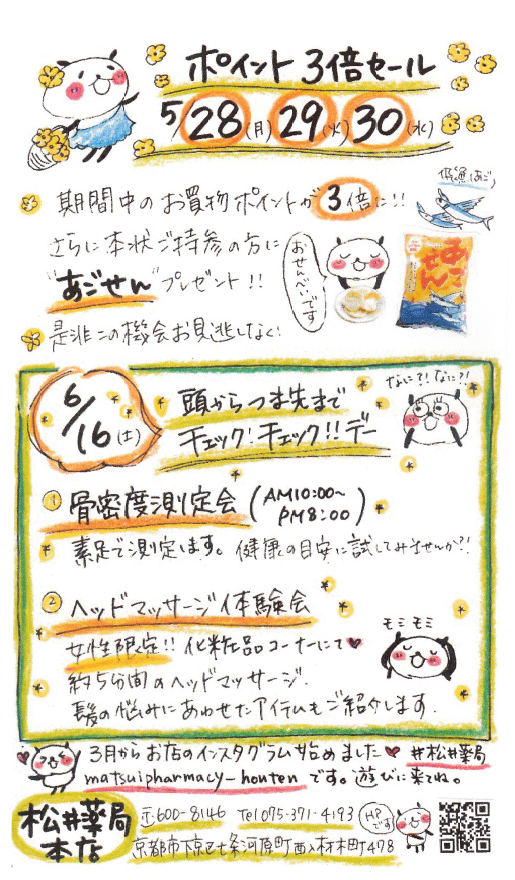 ポイント 3倍セール
5/28(月) 29(火) 30(水)
期間中のお買物ポイントが3倍に!!
さらに本状ご持参の方に
"あごせん"プレゼント!!
是非この機会お見逃しなく!
おせんべいです
あご
せん
6/16(土)
頭からつま先まで
チェック!チェック!!デー
なに?!なに?!
① 骨密度測定会 (AM10:00~
PM8:00)
素足で測定します。健康の目安に試してみませんか?!
② ヘッドマッサージ体験会
女性限定!! 化粧品コーナーにて♥
約5分間のヘッドマッサージ.
髪の悩みにあわせたアイテムもご紹介します.
モミモミ
3月からお店のインスタグラム始めました♥ #松井薬局
matsuipharmacy-hontenです。遊びに来てね。
松井薬局
本店
〒600-8146 Tel 075-371-4193
HPです
京都市下京区七条河原町西入材木町478